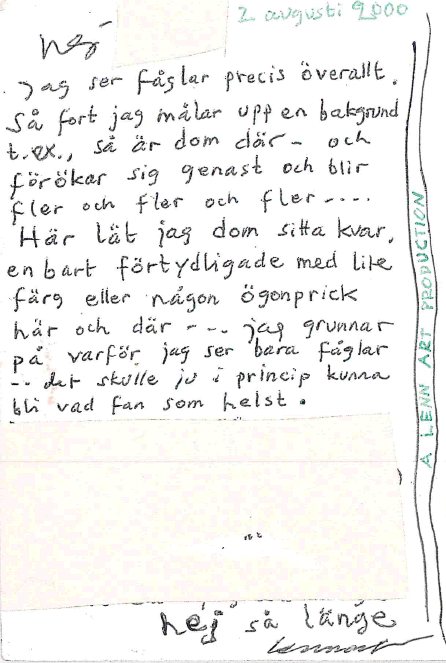 2 augusti 2000
hej
Jag ser fåglar precis överallt.
Så fort jag målar upp en bakgrund
t.ex., så är dom där - och
förökar sig genast och blir
fler och fler och fler-....
Här lät jag dom sitta kvar,
enbart förtydligade med lite
färg eller någon ögonprick
här och där --- jag grunnar
på varför jag ser bara fåglar
-- det skulle ju i princip kunna
bli vad fan som helst.
hej så länge
Lennart
A LENN ART PRODUCTION